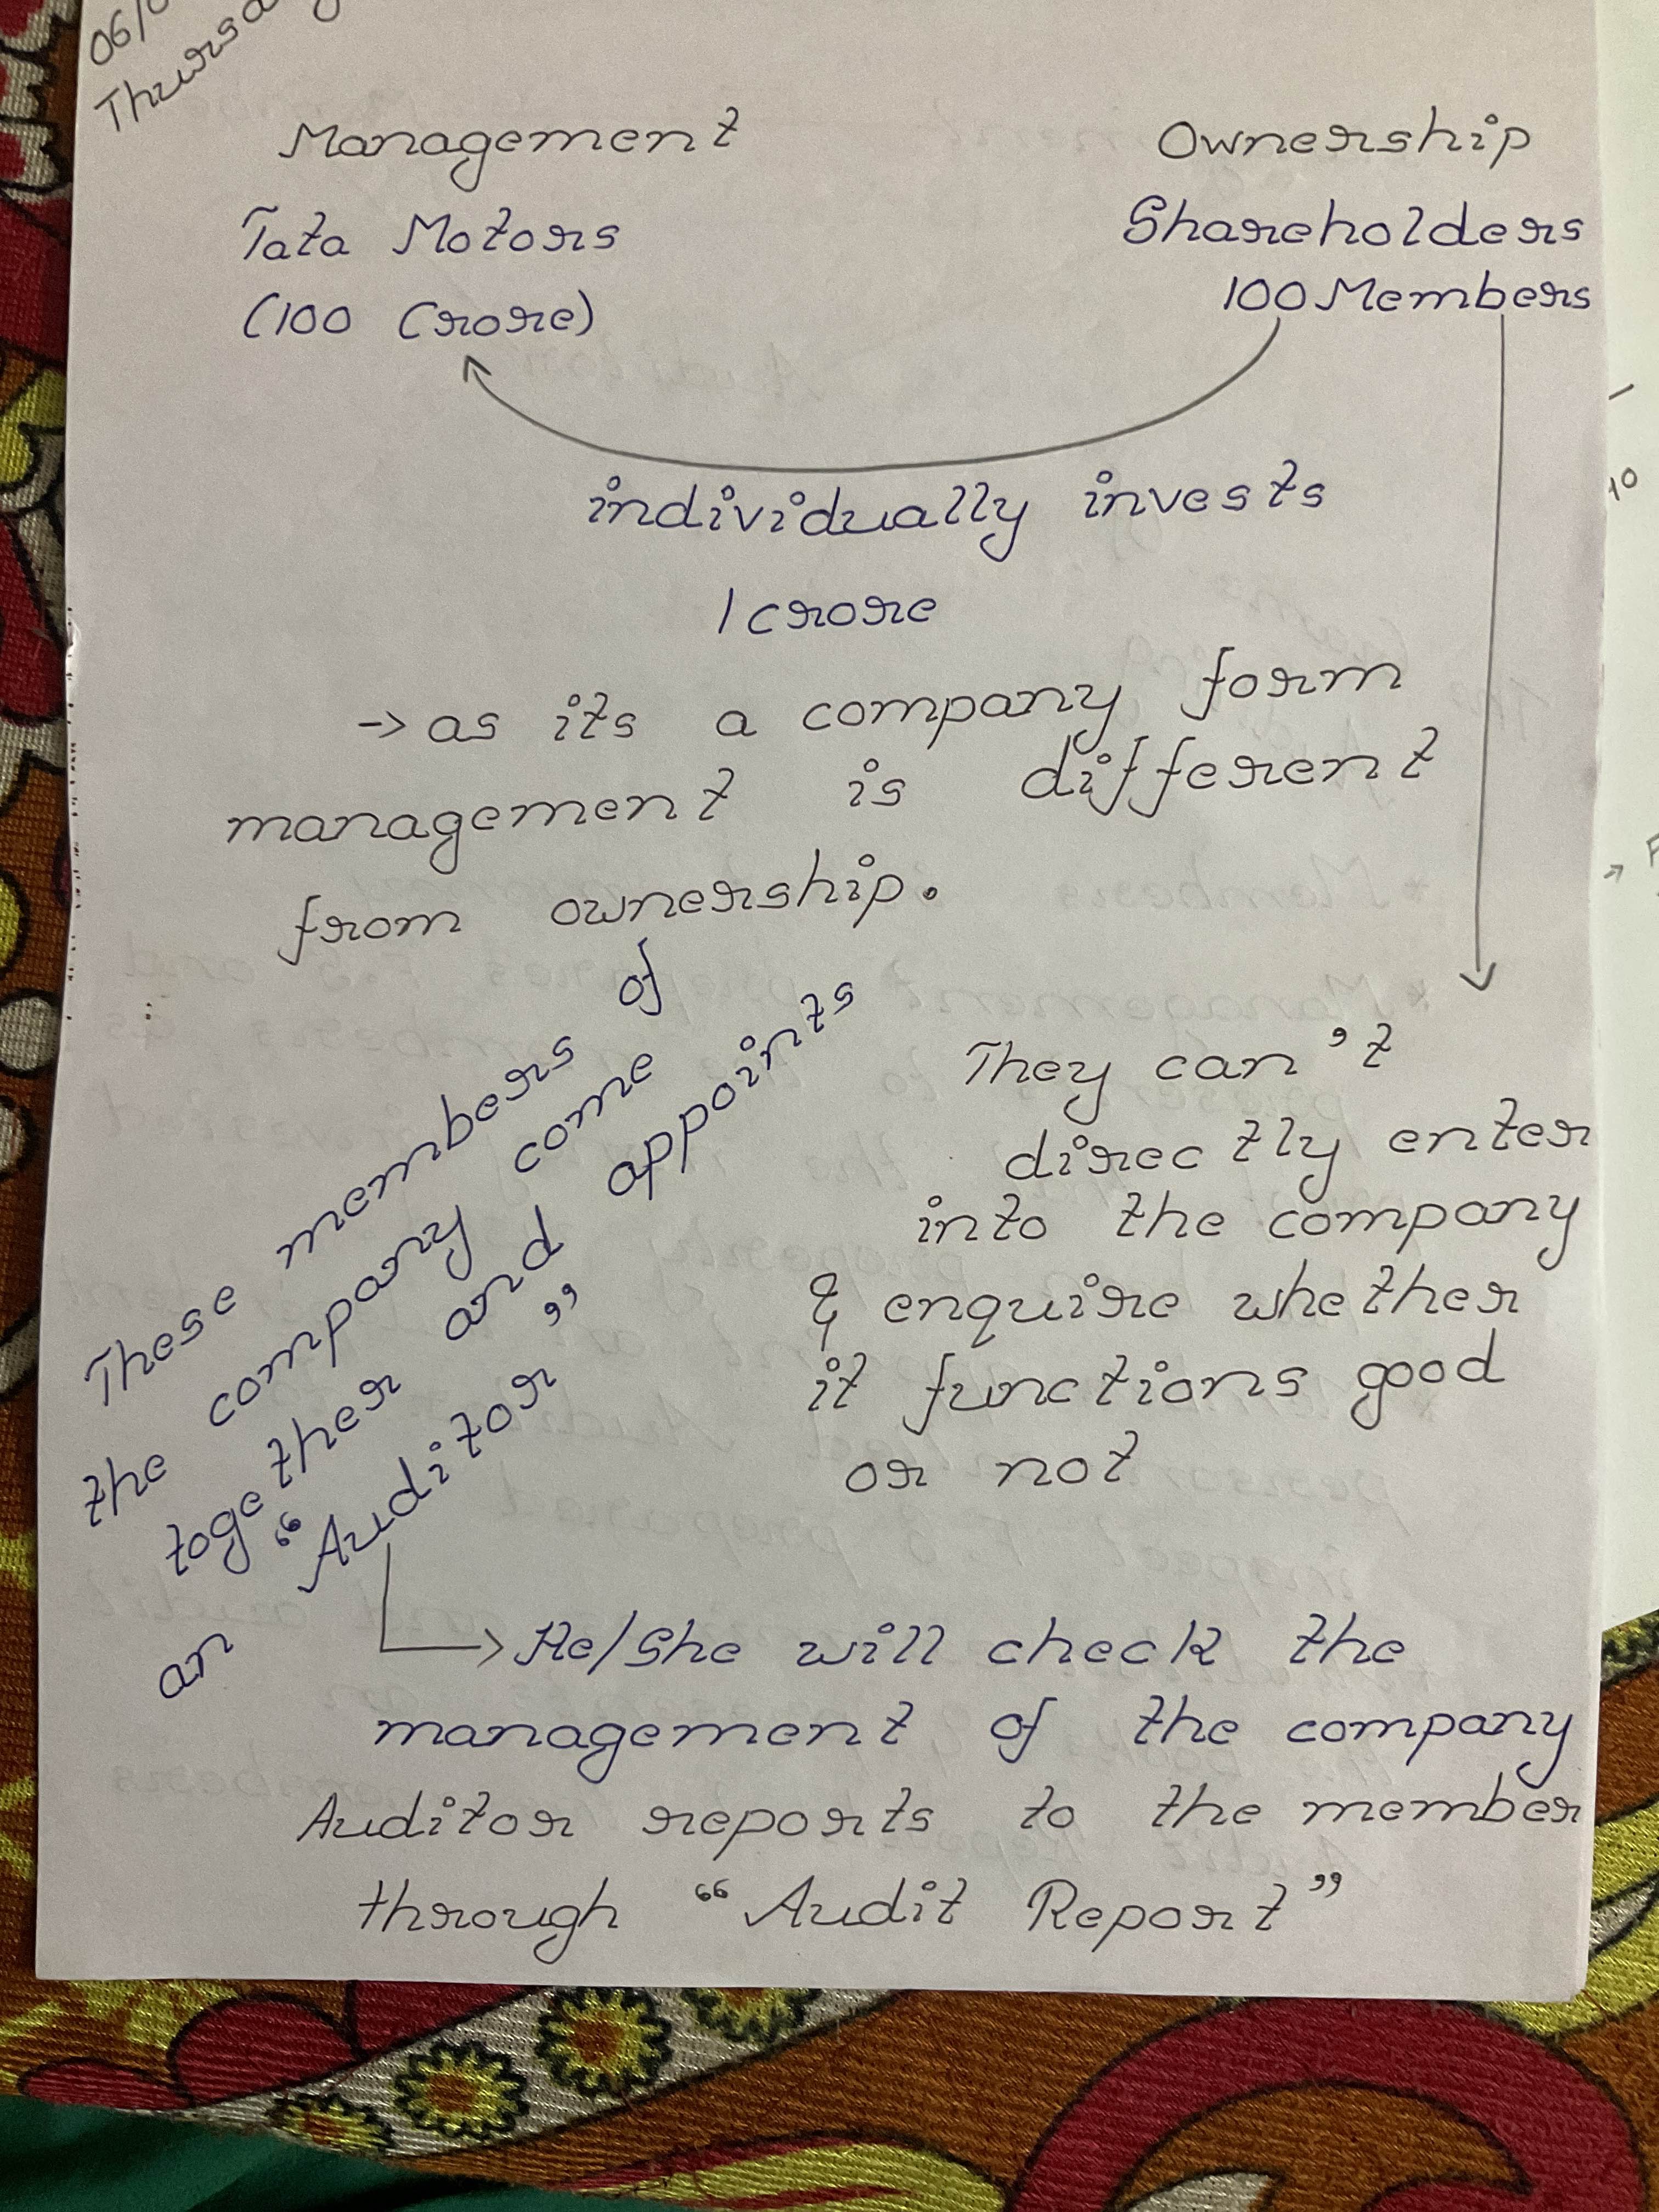 06/0
Thursda
Management
Ownership
Tata Motors
Shareholders
(100 Crore)
100 Members
individually invests
1 crore
→ as its a company form
management is different
from ownership.
They can't
directly enter
into the company
& enquire whether
it functions good
or not
These members of
the company come
together and appoints
an "Auditor"
He/She will check the
management of the company
Auditor reports to the member
through "Audit Report"